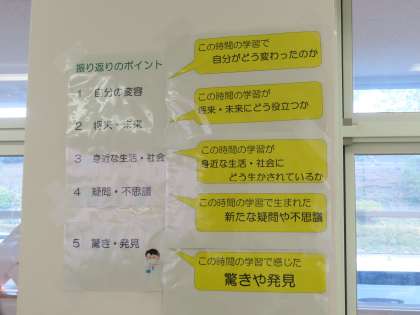 振り返りのポイント
1 自分の変容
この時間の学習で
自分がどう変わったのか
2 将来・未来
この時間の学習が
将来・未来にどう役立つか
3 身近な生活・社会
この時間の学習が
身近な生活・社会に
どう生かされているか
4 疑問・不思議
この時間の学習で生まれた
新たな疑問や不思議
5 驚き・発見
この時間の学習で感じた
驚きや発見